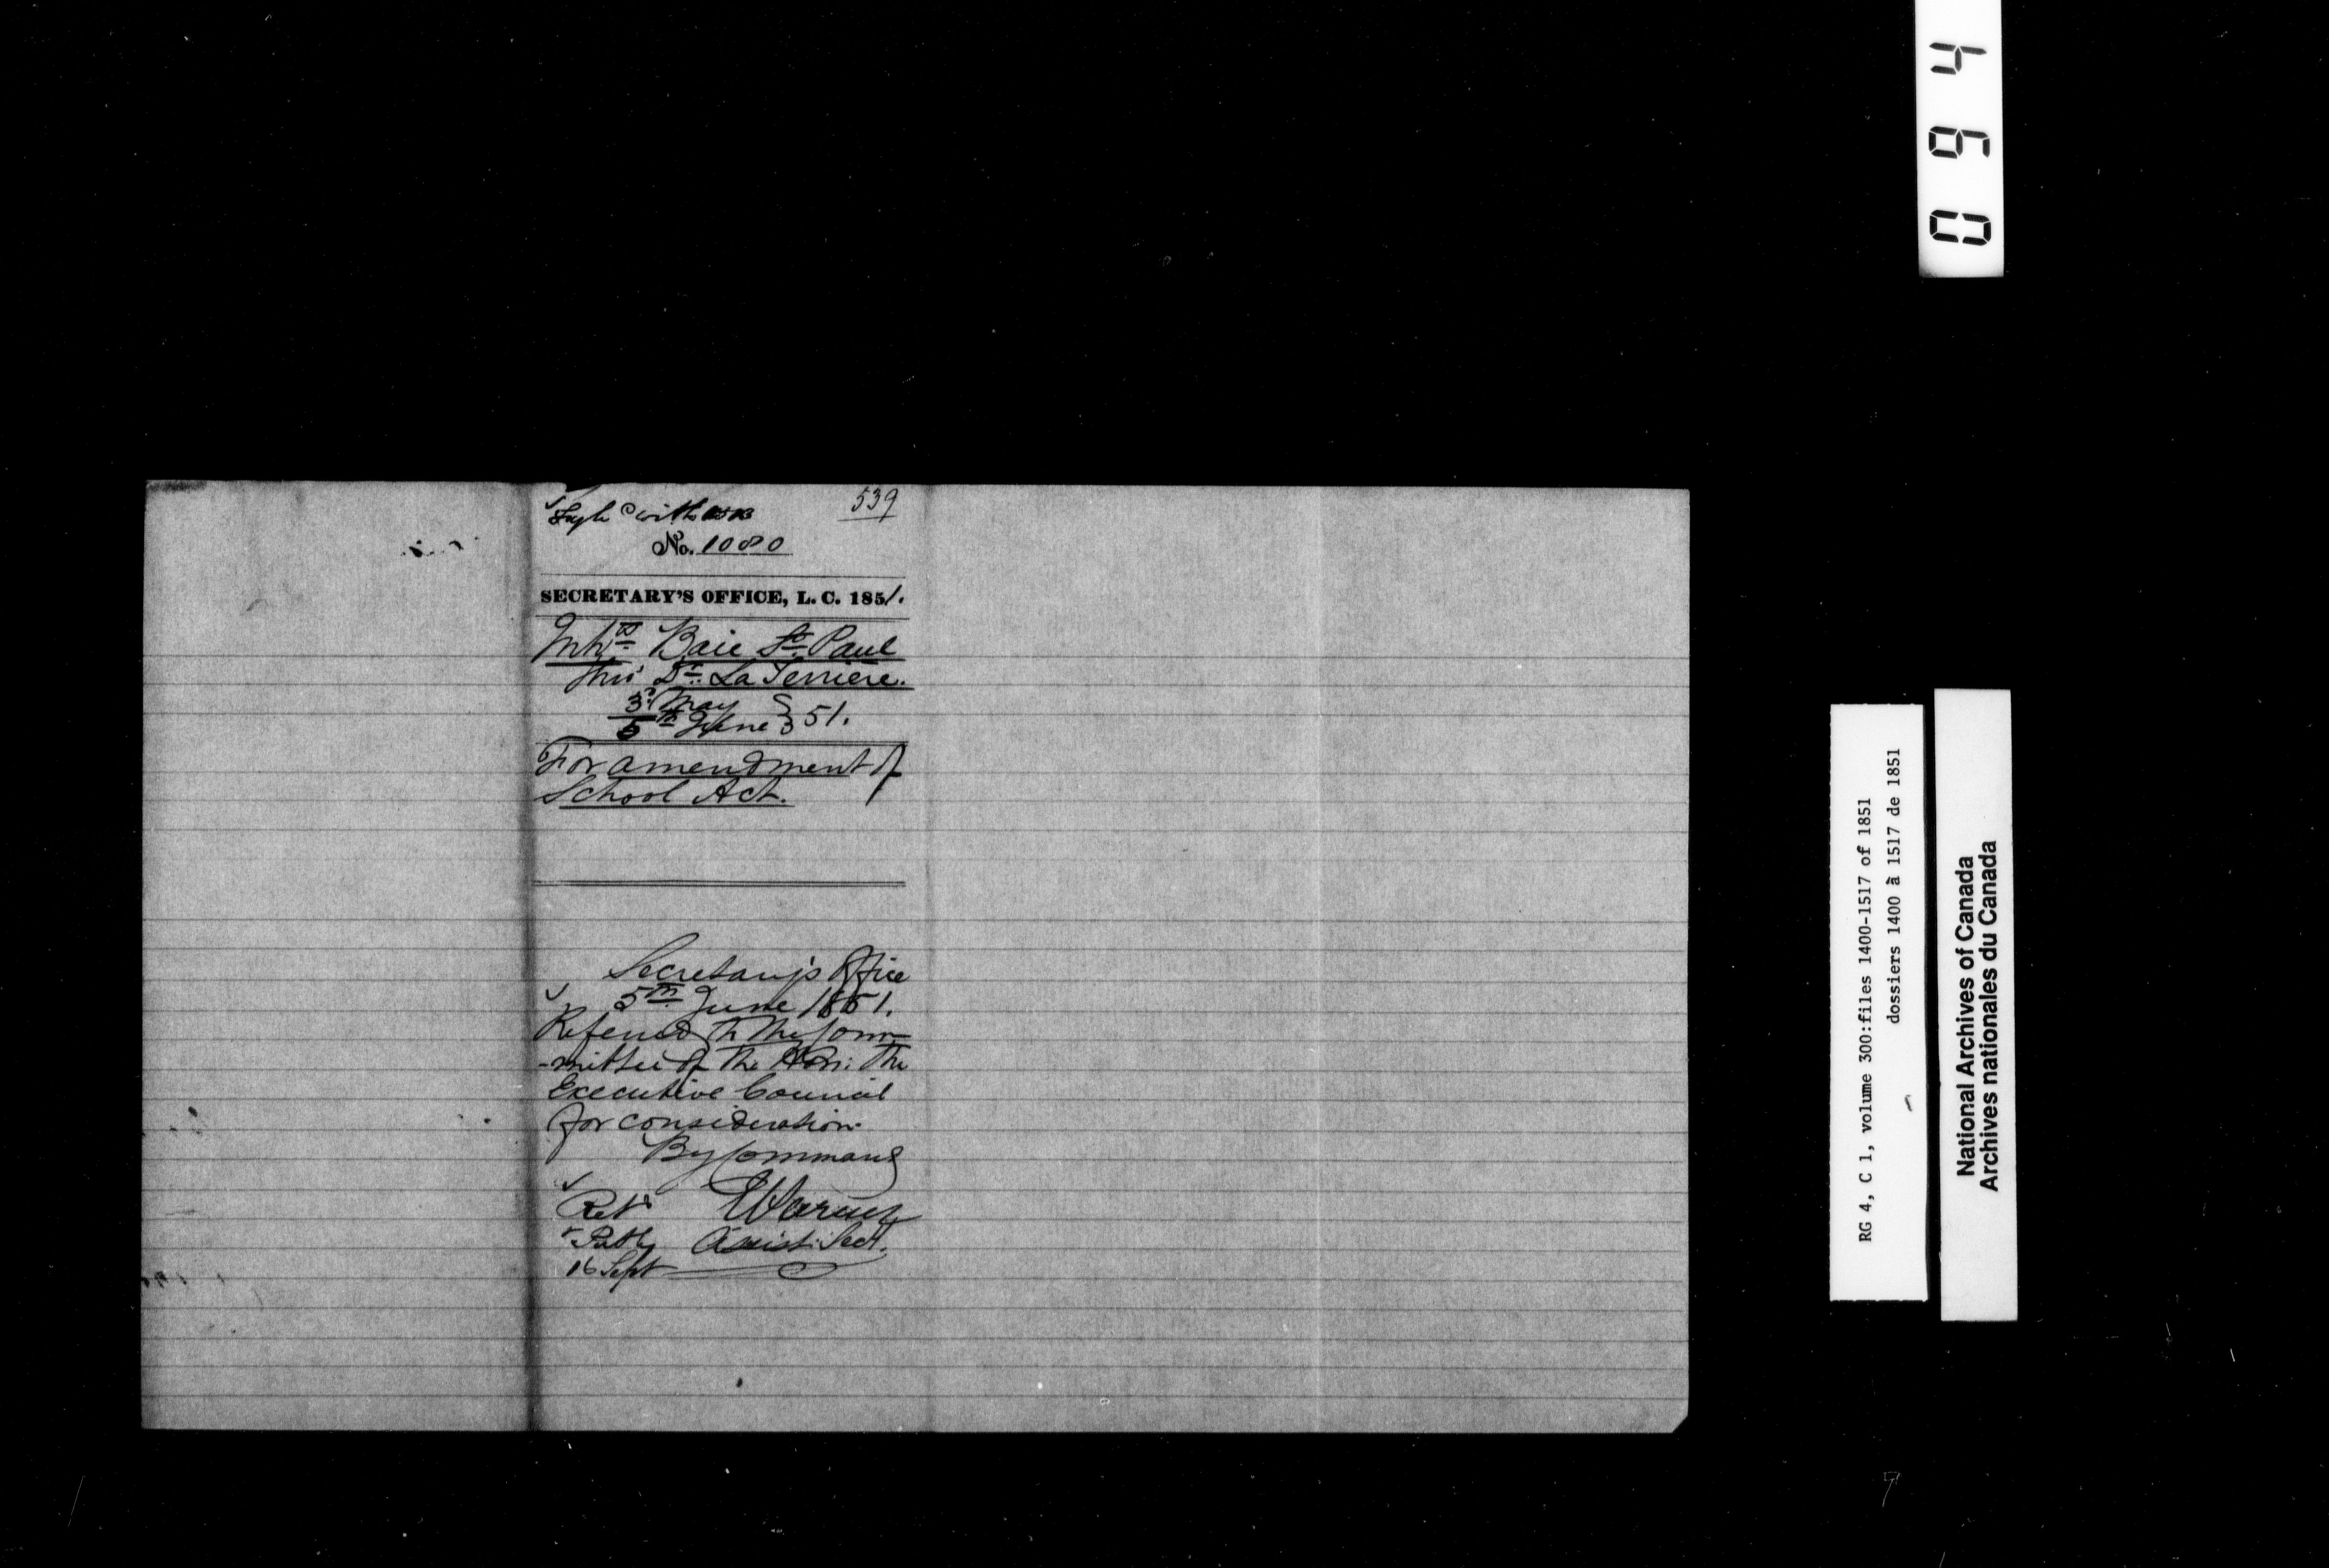 with
539
No. 1080
SECRETARY'S OFFICE, L. C. 1851.
Inhts Baie St. Paul
thro' Dr. La Terriere.
3d May
5th June } 51.
For amendment of
School Act.
Secretary's Office
5th June 1851.
Referred to the Com-
-mittee of the Hon: the
Executive Council
for consideration.
By Command
Retd
Assist: Sect.
16 Sept
094
RG 4, C 1, volume 300:files 1400-1517 of 1851
dossiers 1400 à 1517 de 1851
National Archives of Canada
Archives nationales du Canada